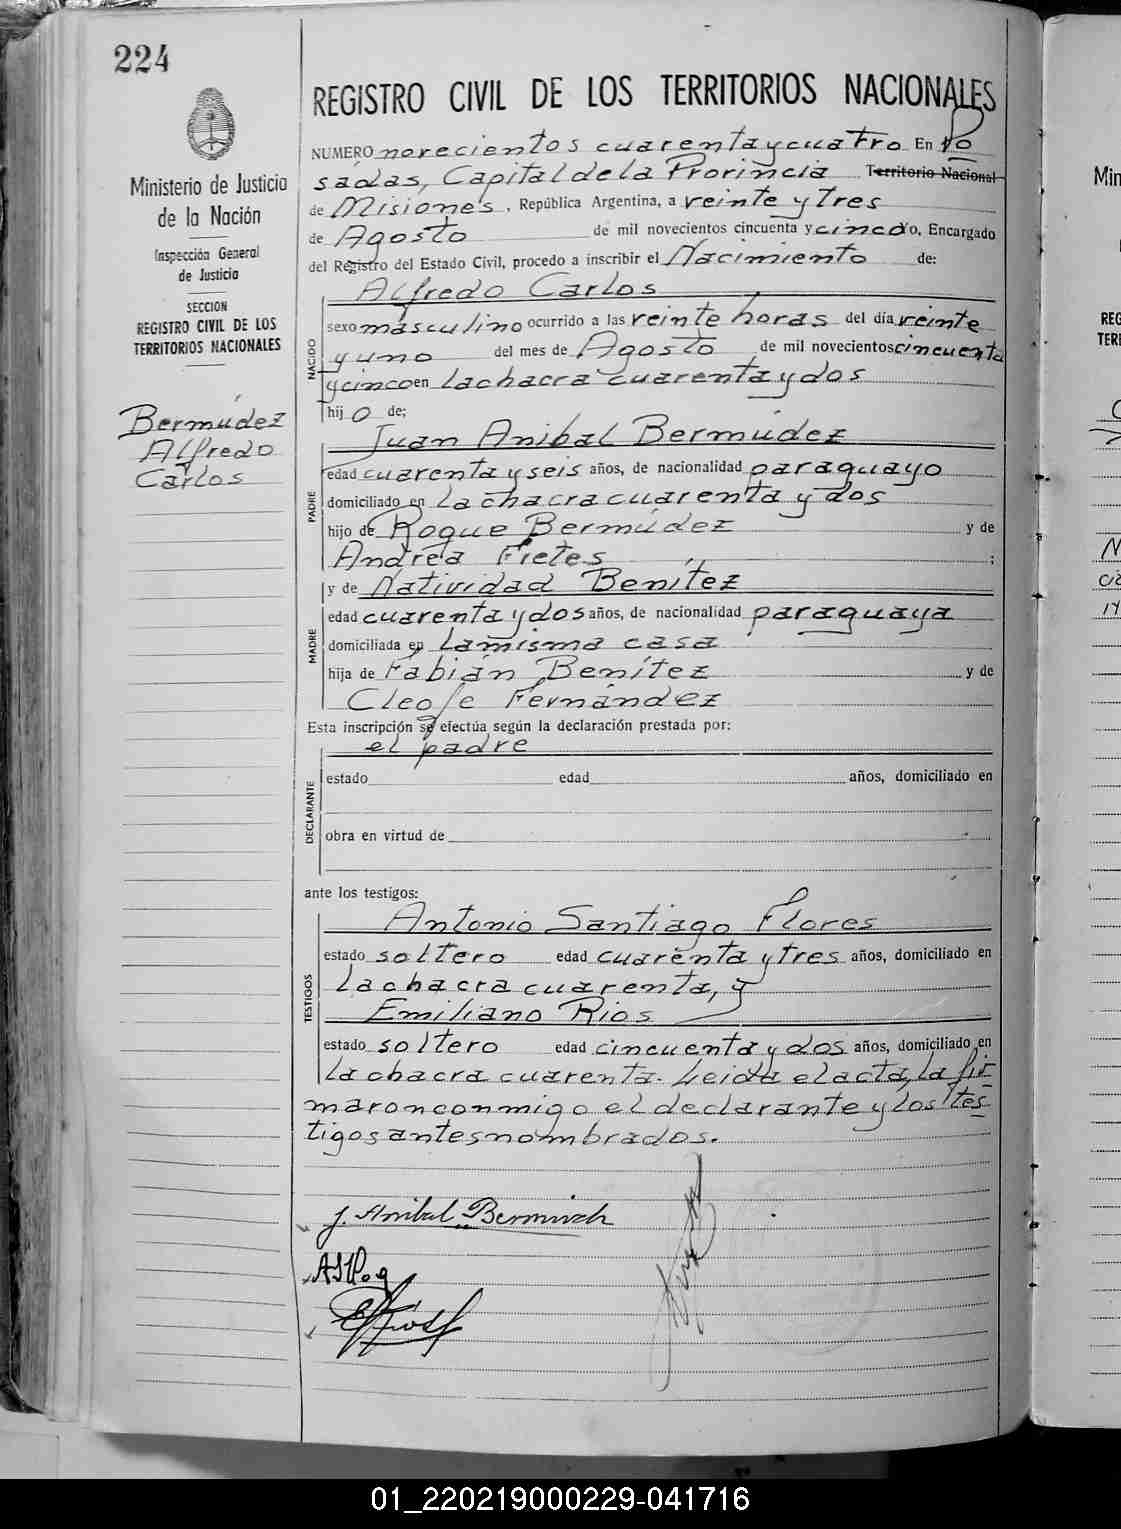 224
Ministerio de Justicia
de la Nación
Inspección General
de Justicia
SECCION
REGISTRO CIVIL DE LOS
TERRITORIOS NACIONALES
Bermúdez
Alfredo
Carlos
REGISTRO CIVIL DE LOS TERRITORIOS NACIONALES
NUMERO novecientos cuarenta y cuatro En Po
sadas, Capital de la Provincia Territorio Nacional
de Misiones, República Argentina, a veinte y tres
de Agosto de mil novecientos cincuenta y cinco, Encargado
del Registro del Estado Civil, procedo a inscribir el Nacimiento de:
NACIDO
Alfredo Carlos
sexo masculino ocurrido a las veinte horas del día veinte
y uno del mes de Agosto de mil novecientos cincuenta
y cinco en la chacra cuarenta y dos
hijo de:
PADRE
Juan Anibal Bermúdez
edad cuarenta y seis años, de nacionalidad paraguayo
domiciliado en la chacra cuarenta y dos
hijo de Roque Bermúdez y de
Andrea Fretes ;
MADRE
y de Natividad Benítez
edad cuarenta y dos años, de nacionalidad paraguaya
domiciliada en la misma casa
hija de Fabián Benítez y de
Cleofe Fernández
Esta inscripción se efectúa según la declaración prestada por:
DECLARANTE
el padre
estado edad años, domiciliado en
obra en virtud de
ante los testigos:
TESTIGOS
Antonio Santiago Flores
estado soltero edad cuarenta y tres años, domiciliado en
la chacra cuarenta, y
Emiliano Rios
estado soltero edad cincuenta y dos años, domiciliado en
la chacra cuarenta. Leida el acta, la fir
maron conmigo el declarante y los tes
tigos antes nombrados.
J. Anibal Bermúdez
01_220219000229-041716